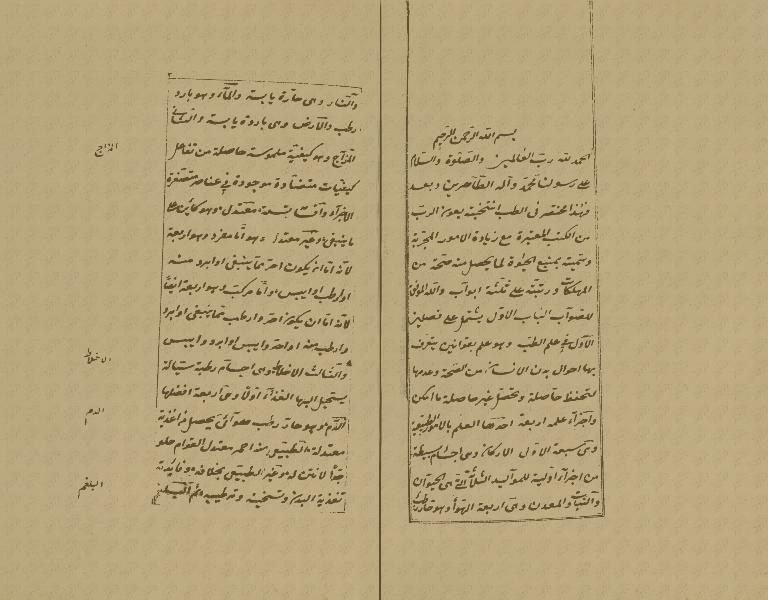 بسم الله الرحمن الرحيم
الحمد لله رب العالمين والصلوة والسلام
على رسوله محمد وآله الطاهرين وبعد
فهذا مختصر فى الطب انتخبته بعون الرب
من الكتب المعتبرة مع زيادة الامور المجربة
وسميته بمنبع الحيوة لما يحصل منه صحة من
المهلكات ورتبته على ثلثة ابواب والله الموفق
للصواب الباب الاول يشتمل على فصلين
الاول فى علم الطب وهو علم بقوانين يتعرف
بها احوال بدن الانسان من الصحة وعدمها
لتحفظ حاصلة وتحصل غير حاصلة ما امكن
واجزاء علمه اربعة احدها العلم بالامور الطبيعية
وهى سبعة الاول الاركان وهى اجسام بسيطة
من اجزاء اولية للمواليد الثلثة التى هى الحيوان
والنبات والمعدن وهى اربعة الهواء وهو حار رطب
والنار وهى حارة يابسة والماء وهو بارد
رطب والارض وهى باردة يابسة والثانى
المزاج وهو كيفية ملموسة حاصلة من تفاعل
كيفيات متضادة موجودة فى عناصر متصغرة
الاجزاء واقسامه تسعة معتدل وهو كائن على
ما ينبغى وغير معتدل وهو اما مفرد وهو اربعة
لانه اما ان يكون احر مما ينبغى او ابرد منه
او ارطب او ايبس واما مركب وهو اربعة ايضا
لانه اما ان يكون احر وارطب مما ينبغى او ابرد
وارطب منه او احر وايبس او ابرد وايبس
والثالث الاخلاط وهى اجسام رطبة سيالة
يستحيل اليها الغذاء اولا وهى اربعة افضلها
الدم وهو حار رطب هوائى يحصل من اغذية
معتدلة والطبيعى منه احمر معتدل القوام حلو
جدا لا نتن له وغير الطبيعى بخلافه وفايدته
تغذية البدن وتسخينه وترطيبه ثم البلغم
المزاج
الاخلاط
الدم
البلغم